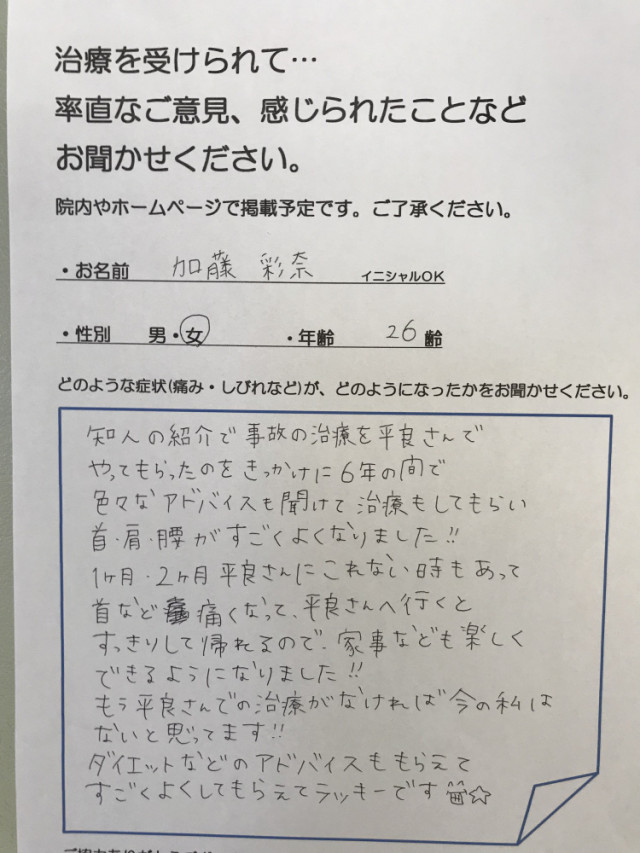 治療を受けられて…
率直なご意見、感じられたことなど
お聞かせください。
院内やホームページで掲載予定です。ご了承ください。
・お名前 加藤 彩奈 イニシャルOK
・性別 男・女 ・年齢 26 齢
どのような症状(痛み・しびれなど)が、どのようになったかをお聞かせください。
知人の紹介で事故の治療を平良さんで
やってもらったのをきっかけに6年の間で
色々なアドバイスも聞けて治療もしてもらい
首・肩・腰がすごくよくなりました!!
1ヶ月・2ヶ月平良さんにこれない時もあって
首など痛くなって、平良さんへ行くと
すっきりして帰れるので、家事なども楽しく
できるようになりました!!
もう平良さんでの治療がなければ今の私は
ないと思ってます!!
ダイエットなどのアドバイスももらえて
すごくよくしてもらえてラッキーです☆